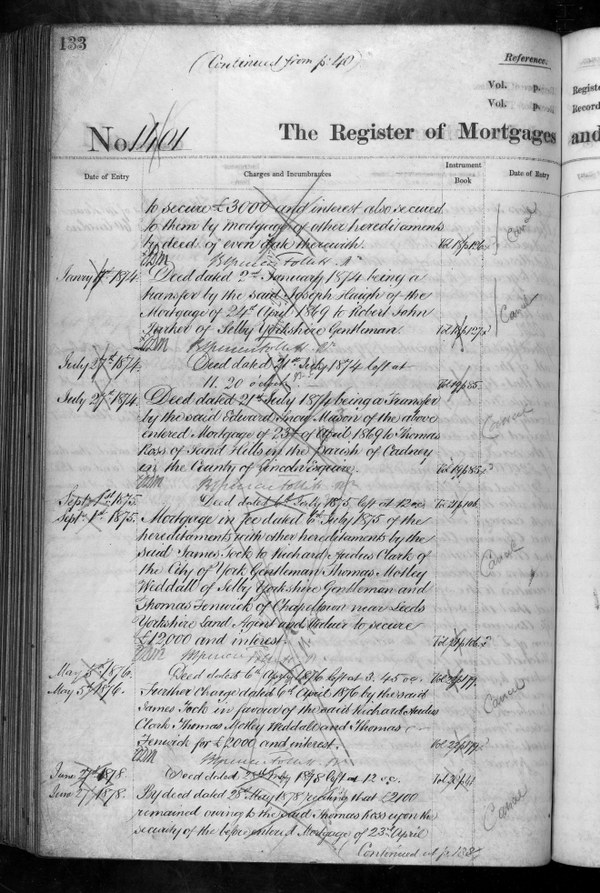 133
(Continued from p. 40)
Reference.
Vol. p.
Vol. p.
No. 1401
The Register of Mortgages
and
Registe
Record
Date of Entry
Charges and Incumbrances
Instrument
Book
Date of Entry
to secure £3000 and interest also secured
to them by mortgage of other hereditaments
by deed of even date therewith.
Cancel
Janry 1874.
Deed dated 2nd January 1874 being a
transfer by the said Joseph Haigh of the
Mortgage of 24th April 1869 to Robert John
Parker of Selby Yorkshire Gentleman.
Cancel
July 27th 1874.
Deed dated 21st July 1874 left at
11.20 o'clock
July 27th 1874.
Deed dated 21st July 1874 being a Transfer
by the said Edward Snow Mason of the above
entered Mortgage of 23rd of April 1869 to Thomas
Ross of Sand Hills in the Parish of Cadney
in the County of Lincoln Esquire.
Cancel
Sept. 1st 1875.
Deed dated 6th July 1875 left at 12 oc.
Sept. 1st 1875.
Mortgage in fee dated 6th July 1875 of the
hereditaments with other hereditaments by the
said James Jock to Richard Audus Clark of
the City of York Gentleman Thomas Motley
Weddall of Selby Yorkshire Gentleman and
Thomas Fenwick of Chapeltown near Leeds
Yorkshire Land Agent and Valuer to secure
£12,000 and interest.
Cancel
May 5th 1876.
Deed dated 6th April 1876 left at 3.45 oc.
May 5th 1876.
Further Charge dated 6th April 1876 by the said
James Jock in favour of the said Richard Audus
Clark Thomas Motley Weddall and Thomas
Fenwick for £2000 and interest.
Cancel
June 27th 1878
Deed dated 28th May 1878 left at 12 oc.
June 27th 1878.
By deed dated 28th May 1878 reciting that £2100
remained owing to the said Thomas Ross upon the
security of the before entered Mortgage of 23rd April
Cancel
(Continued at p. 138)